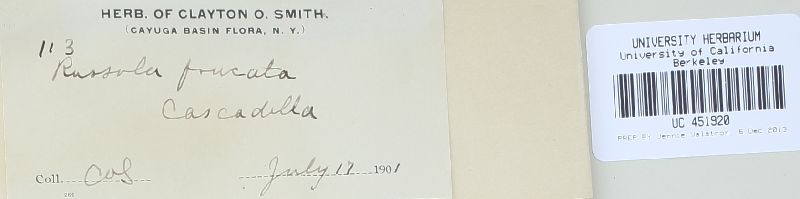 HERB. OF CLAYTON O. SMITH.
(CAYUGA BASIN FLORA, N. Y.)
113
Russula furcata
Cascadilla
Coll. COS July 17 1901
266
UNIVERSITY HERBARIUM
University of California
Berkeley
UC 451920
PREP BY Jennie Walstrom, 5 Dec 2013